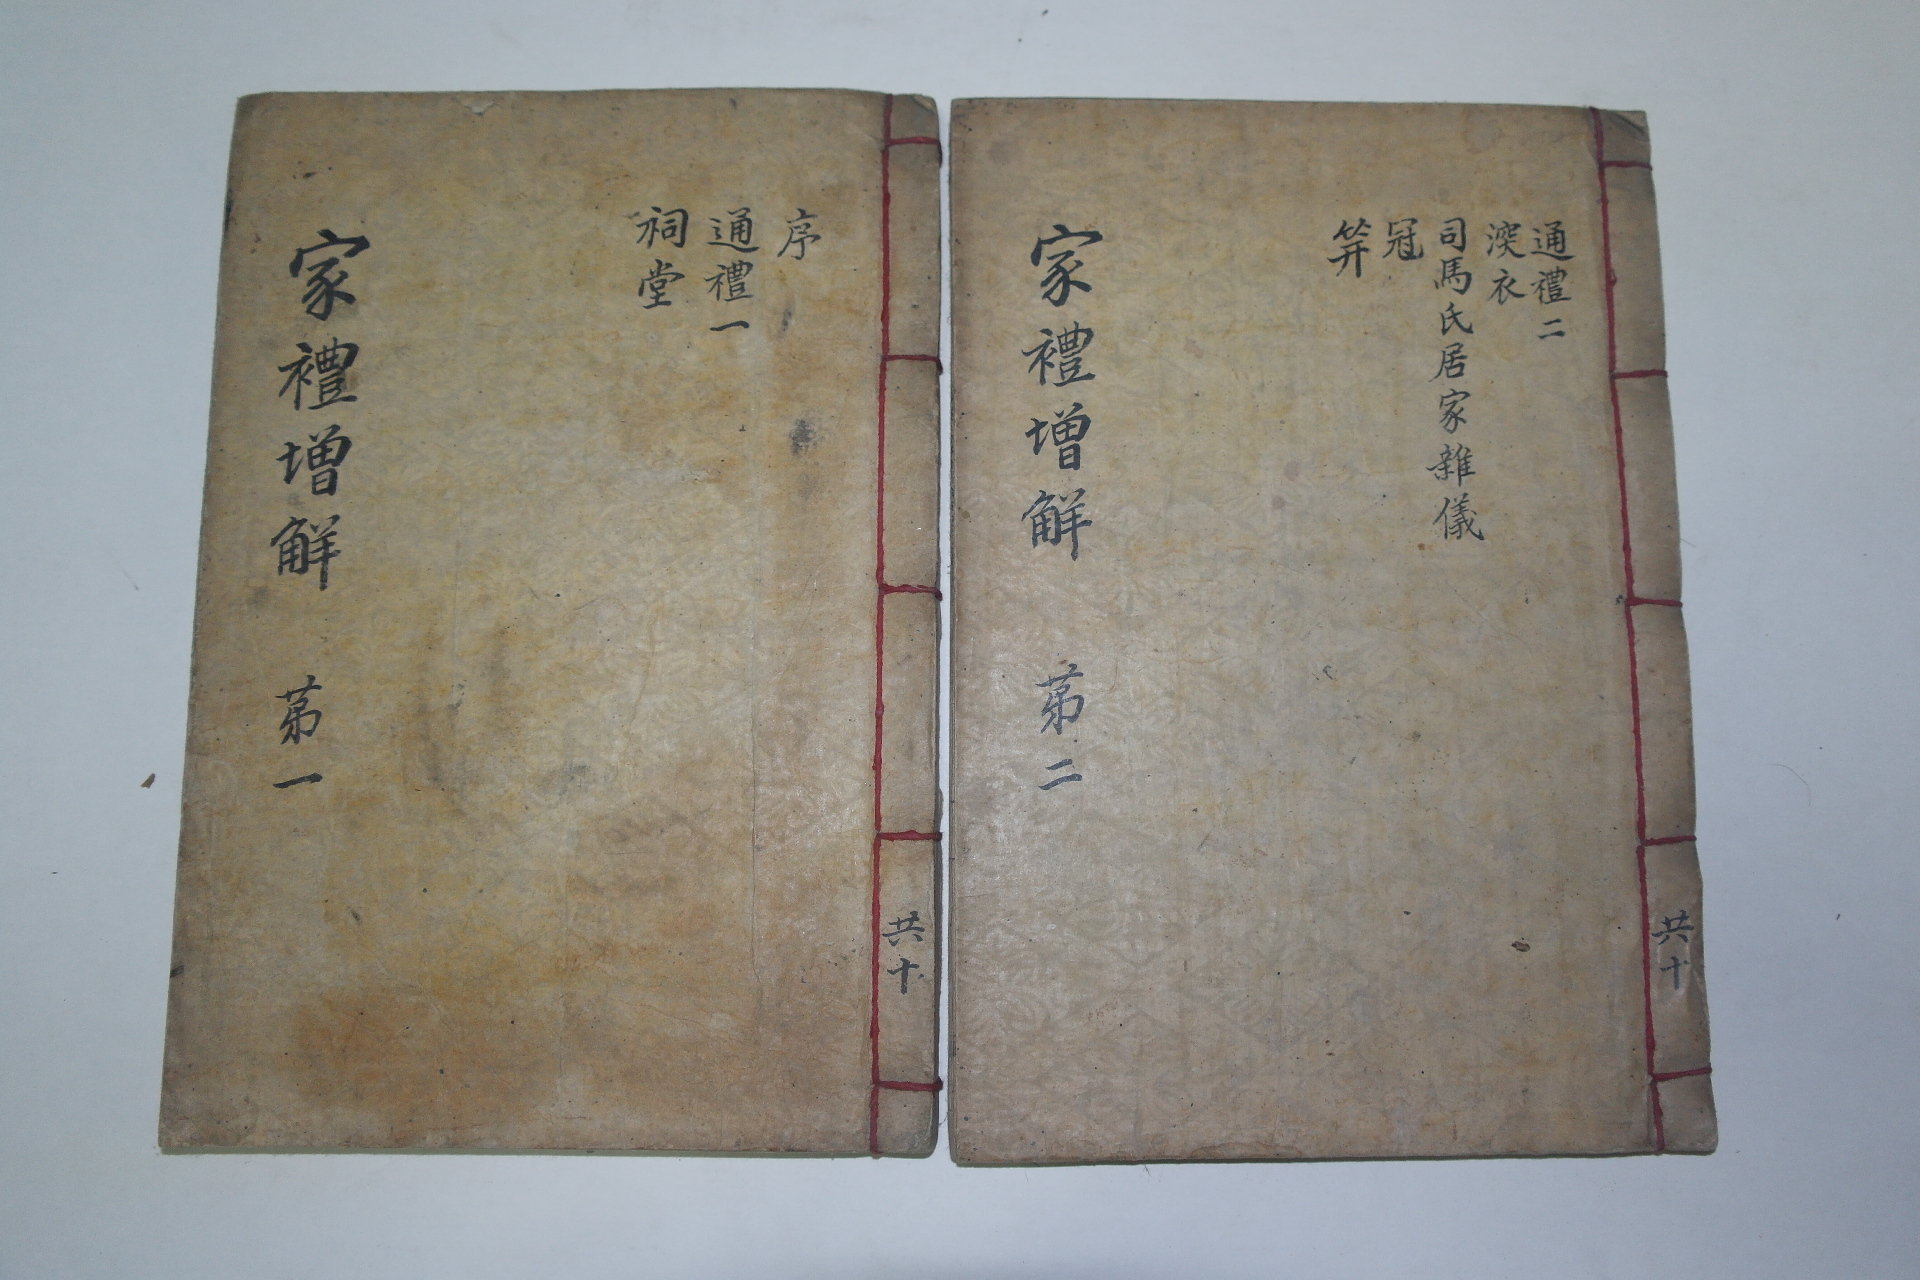 共十
序
通禮一
祠堂
家禮增觧 苐一
共十
通禮二
深衣
司馬氏居家雜儀
冠
笄
家禮增觧 苐二